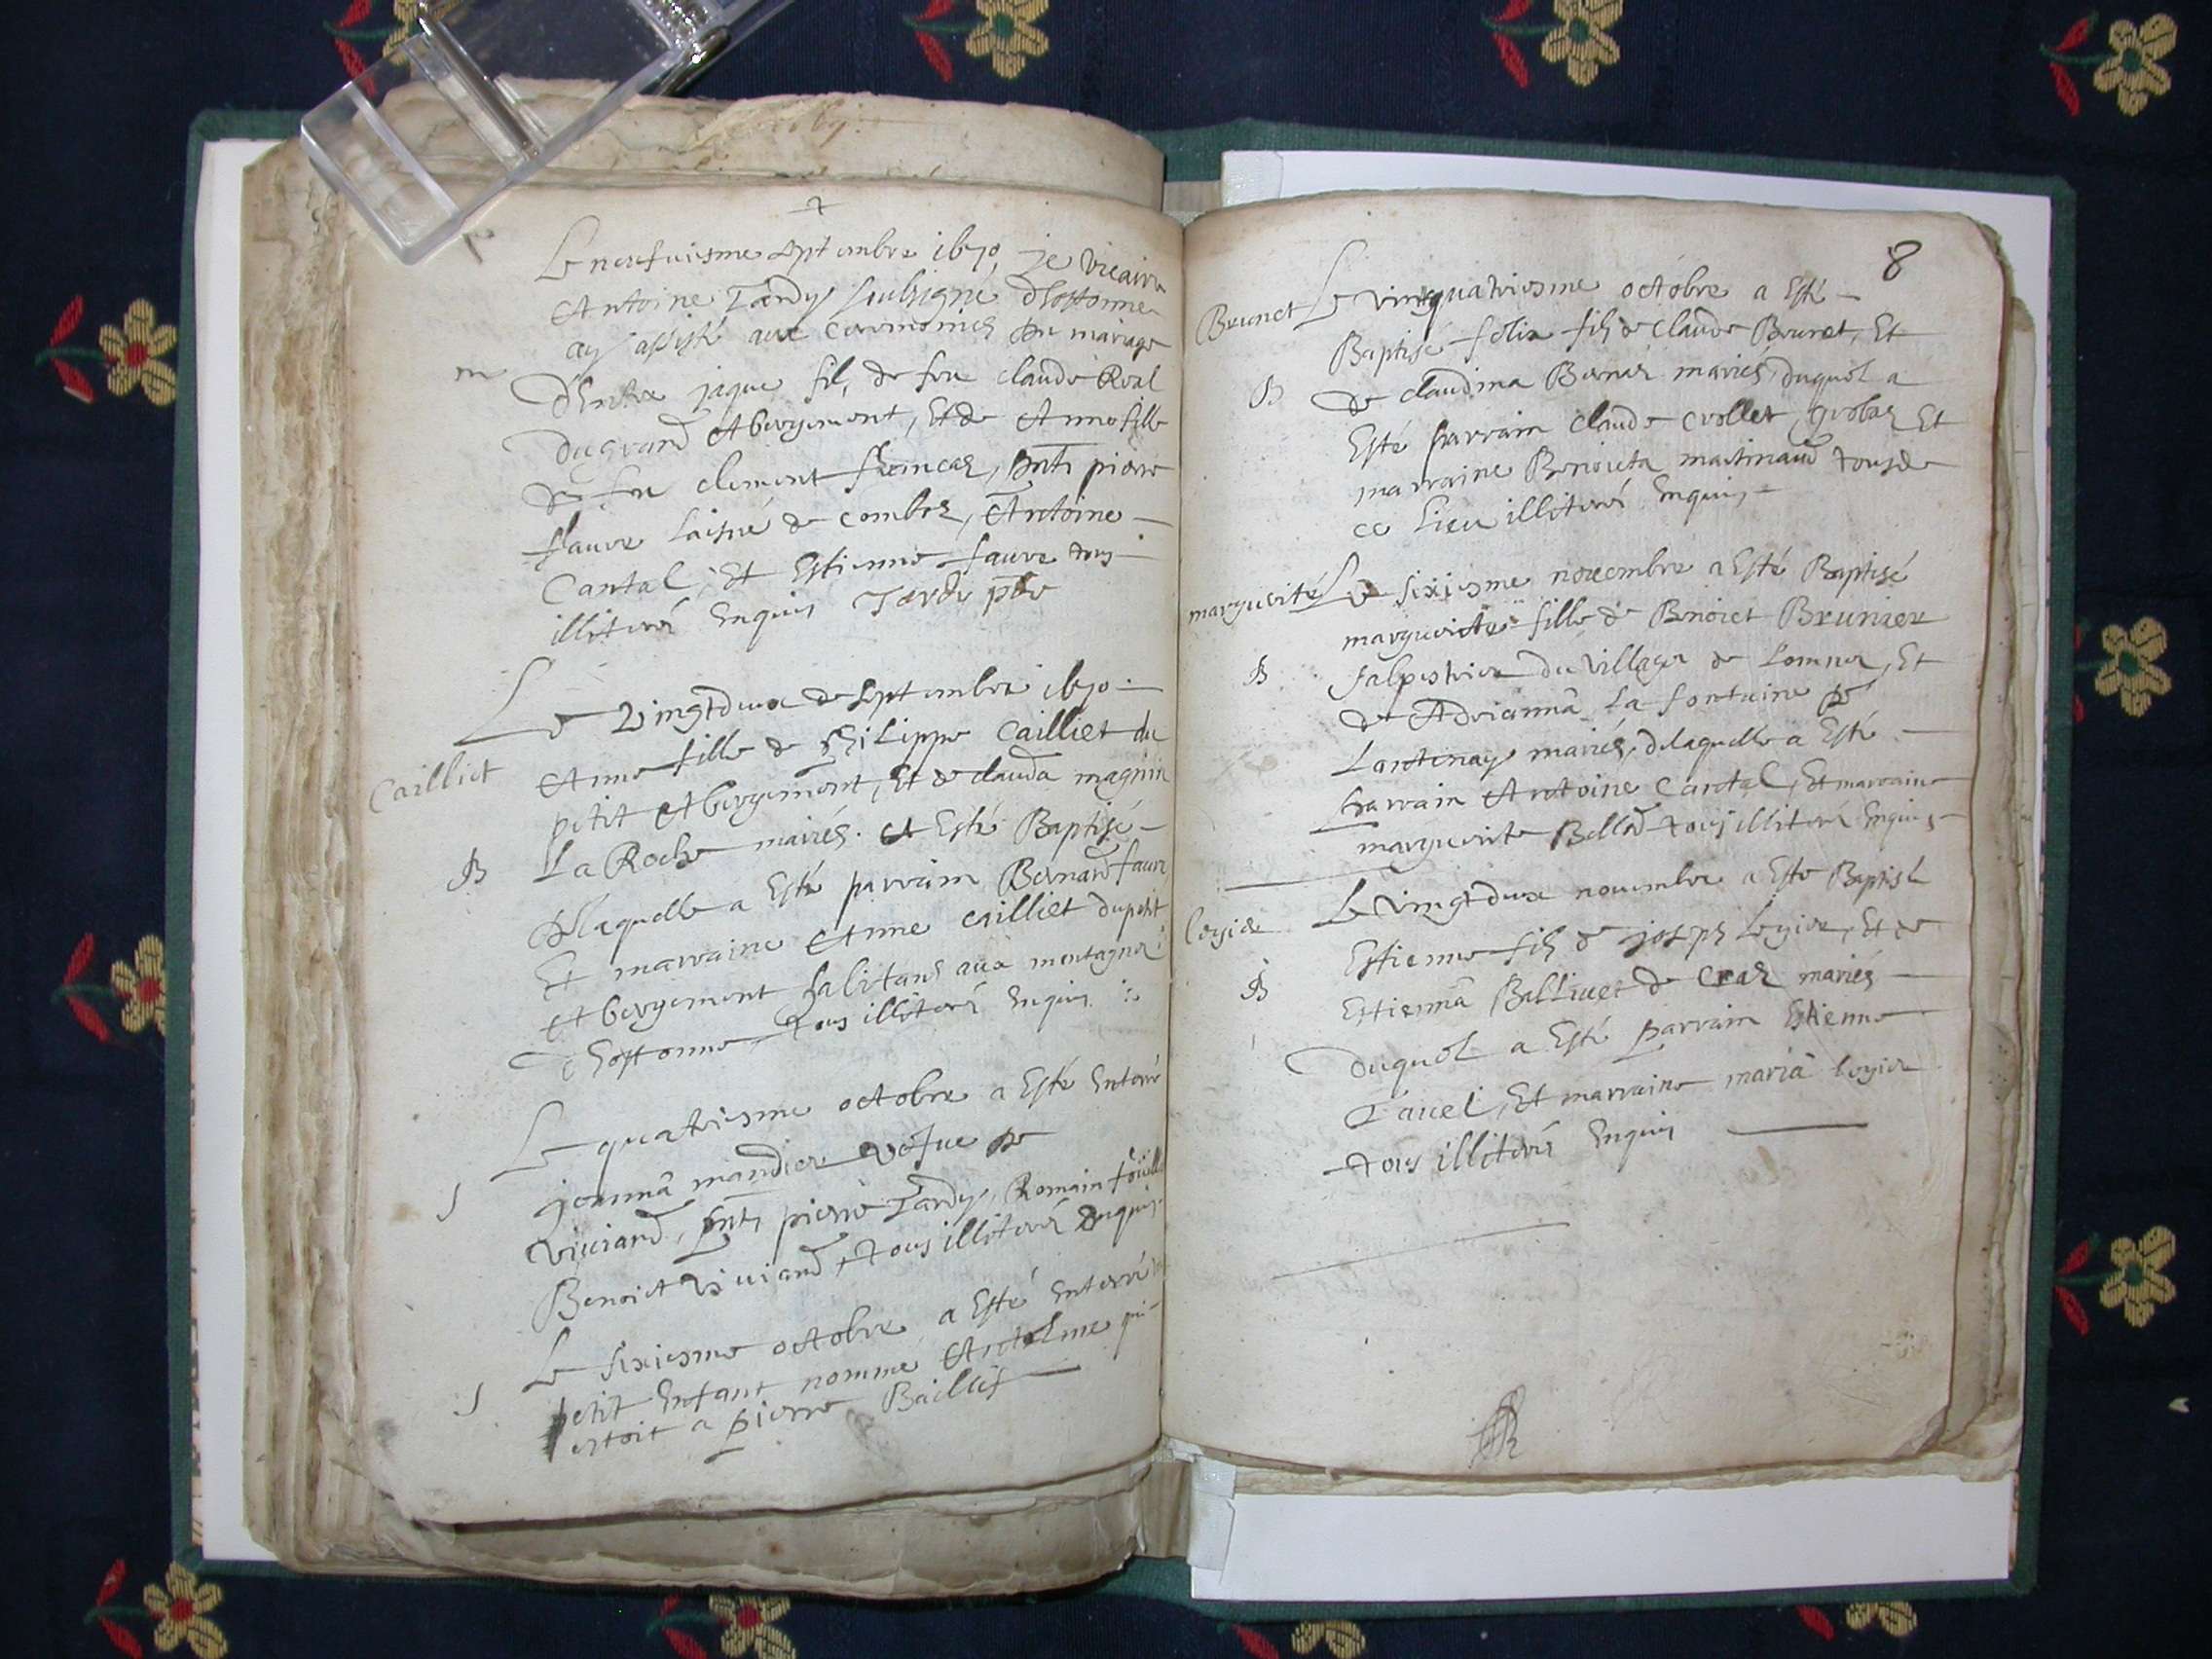 Le neufuiesme septembre 1670, je vicaire
Antoine Tardy soubsigné d'hostonne
ay assisté aux ceremonies du mariage
m
d'Entre jaque fil, de feu claude Real
du grand Abergement, Et de Anne fille
de feu clement francas, pnts pierre
faure laisné de combes, Antoine
Cantal, Et Estienne faure tous
illiterés Enquis Tardy pbre
Le Vingtdeux de septembre 1670
Caillict
Anne fille de philippe Cailliet du
petit Abergement, Et de clauda magnin
La Roche mariés. A Esté Baptisé
B
delaquelle a Esté parrain Bernard faure
Et marraine Anne cailliet du petit
Abergement habitans aux montagnes
d'hostonne tous illiterés Enquis
Le quatriesme octobre a Esté Enterré
jeanna mandier vefue de
S
viuiand, pnts pierre Tardy, Romain
Benoict Viuiand, tous illiterés Enquis
Le sixiesme octobre a Esté Enterré
petit Enfant nommé Antelme qui
S
estoit a pierre Baillif
8
Brunet
Le vingquatriesme octobre a Esté
Baptisé felix fils de claude Brunet, Et
B
de claudina Bernar mariés, duquel a
Esté parrain claude crollet, grobas Et
marraine Benoicta martinand tous de
ce lieu illiterés Enquis
marguerite
Le sixiesme novembre a Esté Baptisé
marguerite fille de Benoict Brunier
B
salpestrier du village de Lomner, Et
de Adrianna La fontaine de
Lantenay mariés, delaquelle a Esté
parrain Antoine Cantal, Et marraine
marguerite Bellod tous illiterés Enquis
Le vingtdeux nouembre a Esté Baptisé
legier
Estienne fils de joseph Legier, Et de
B
Estienna Balliuet de Cras mariés
duquel a Esté parrain Estienne
Tauel, Et marraine maria legier
tous illiterés Enquis